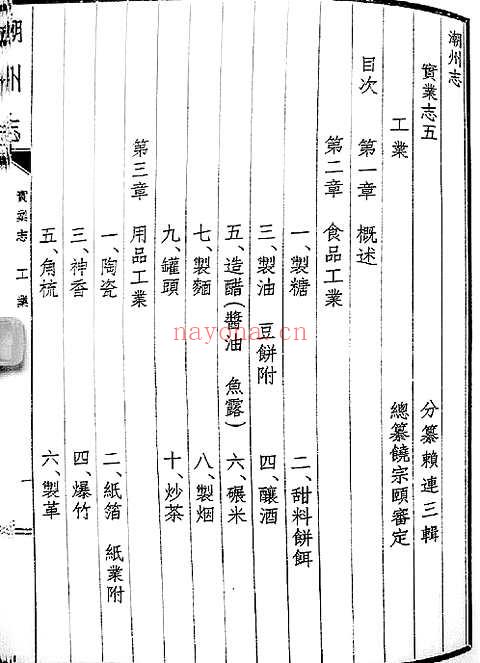 潮州志
實業志五　分纂賴連三輯
工業　總纂饒宗頤審定
目次　第一章　概述
第二章　食品工業
一、製糖　二、甜料餅餌
三、製油　豆餅附　四、釀酒
五、造醋(醬油　魚露)　六、碾米
七、製麵　八、製烟
九、罐頭　十、炒茶
第三章　用品工業
一、陶瓷　二、紙箔　紙業附
三、神香　四、爆竹
五、角梳　六、製革
潮州志
實業志　工業
一
nayona.cn